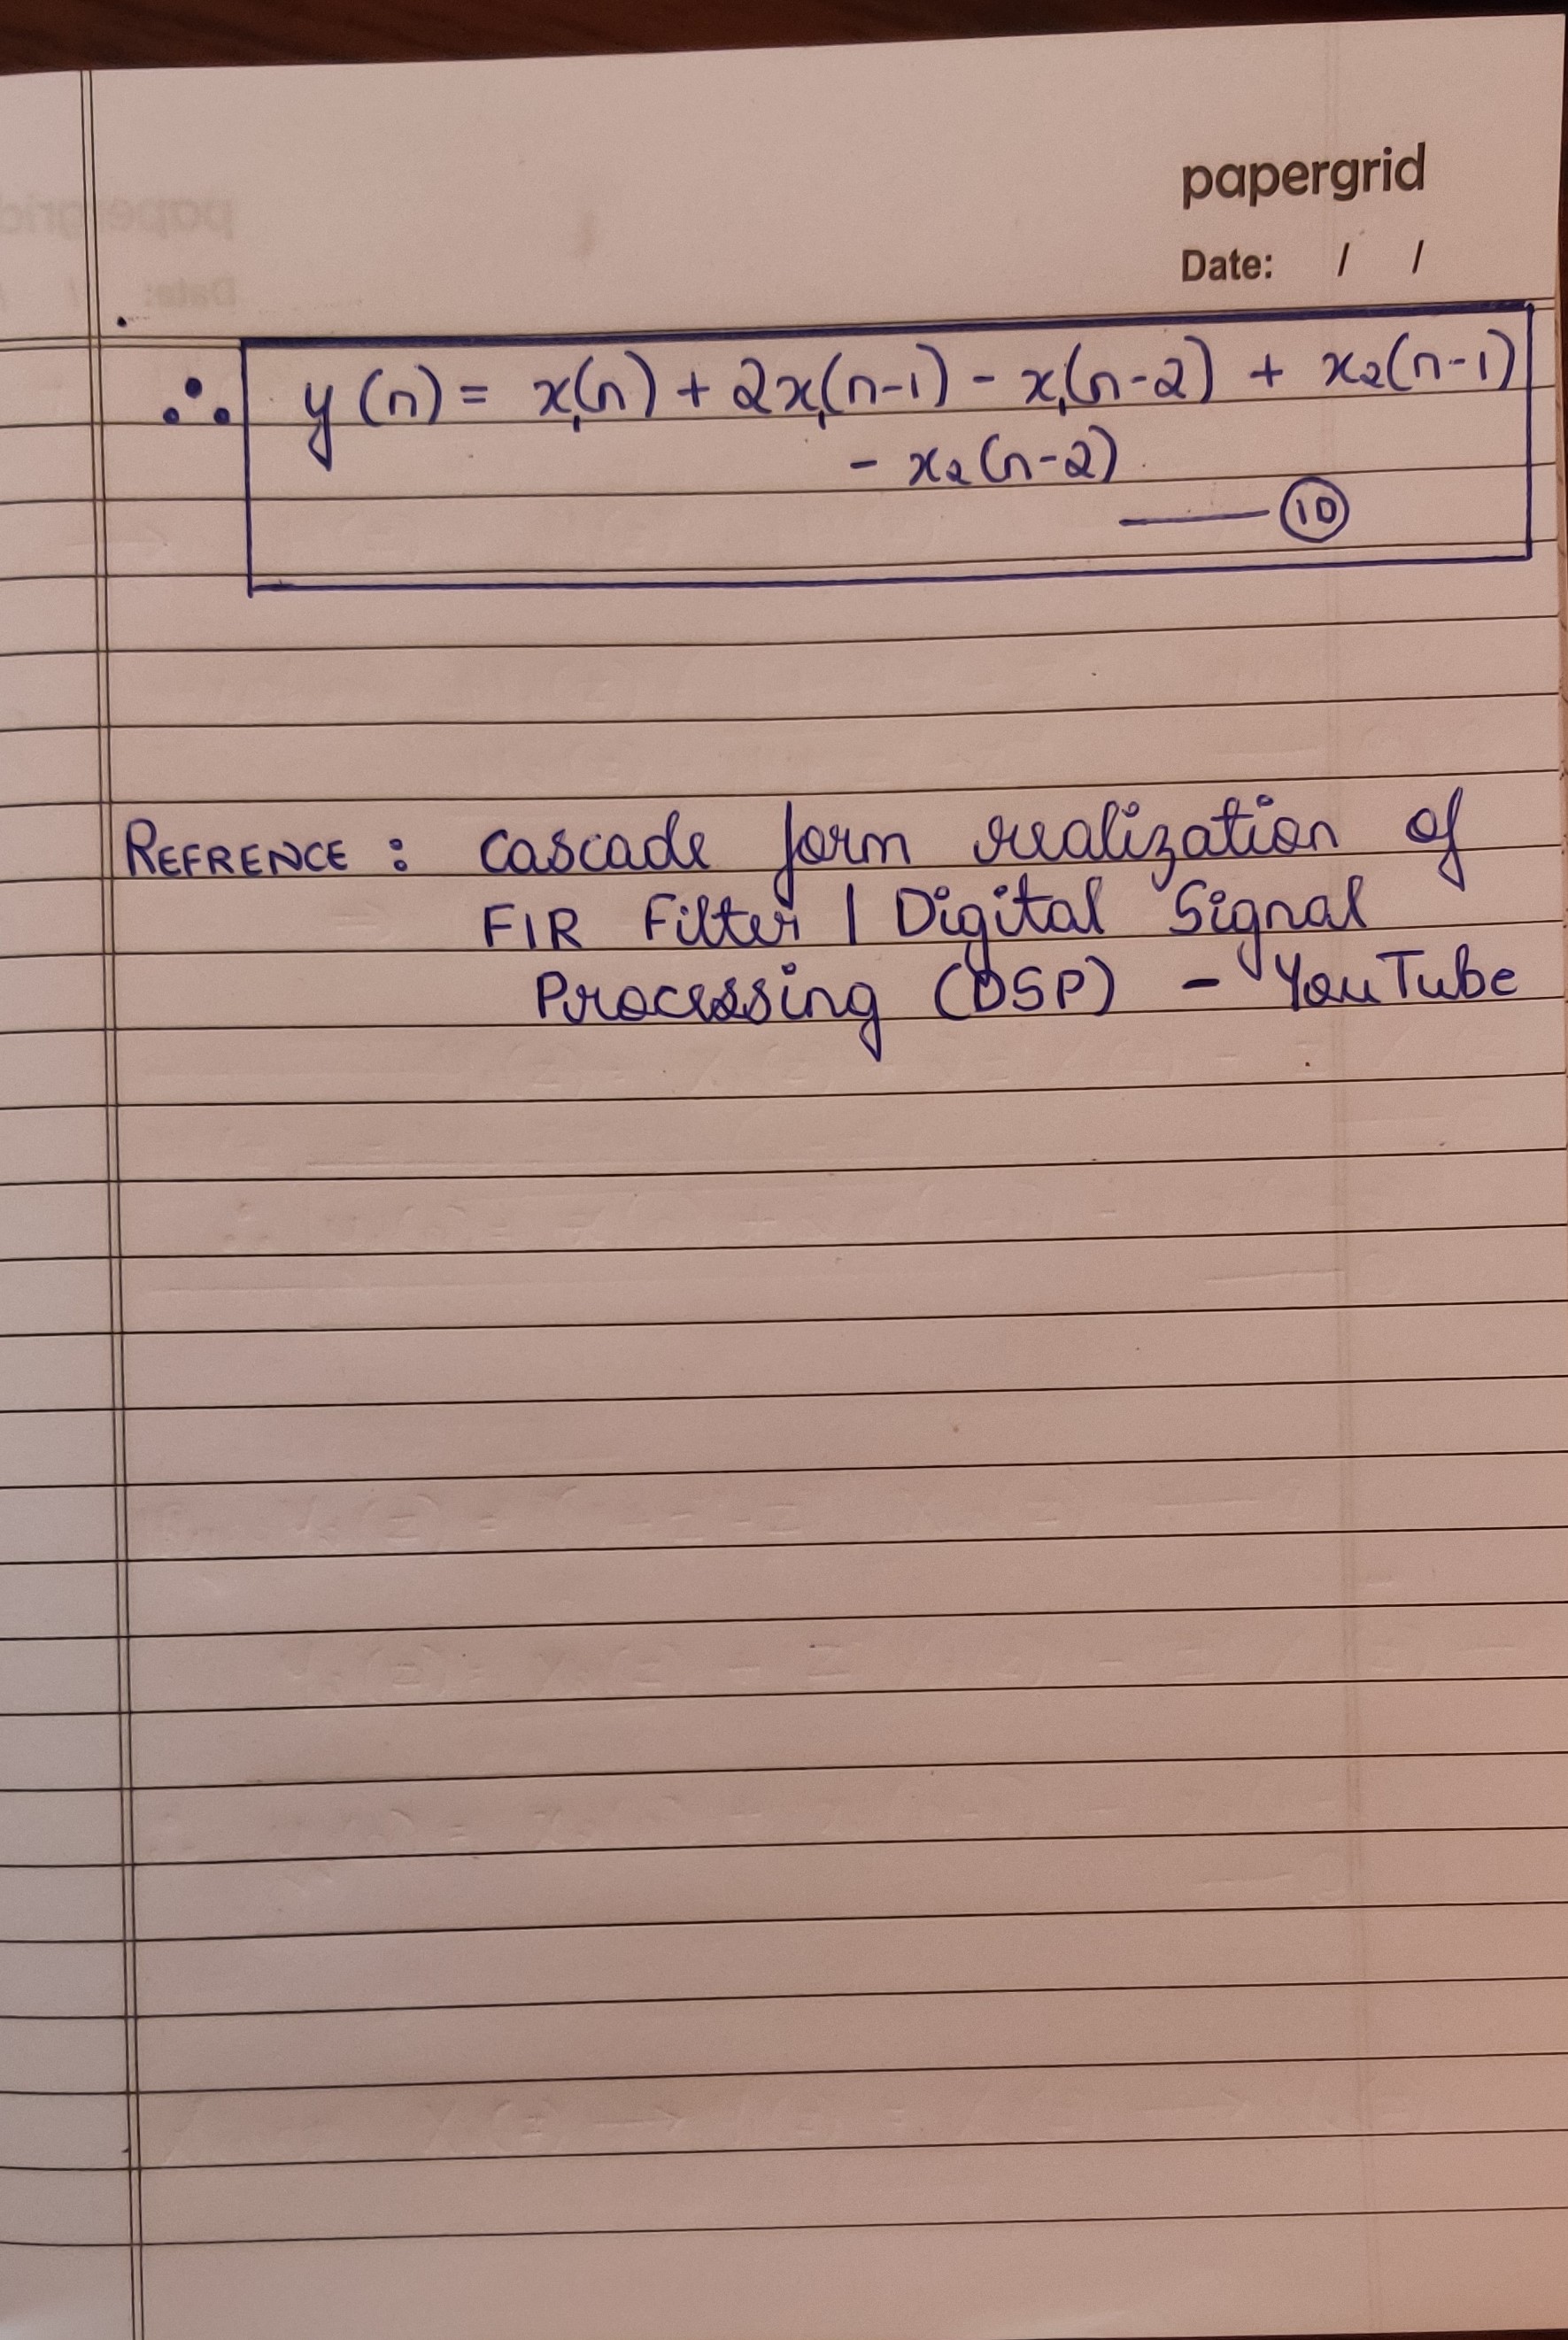 papergrid
Date: / /
∴ y(n) = x₁(n) + 2x₁(n-1) - x₁(n-2) + x₂(n-1)
- x₂(n-2)
—— ⑩
REFRENCE : Cascade form realization of
FIR Filter | Digital Signal
Processing (DSP) - YouTube